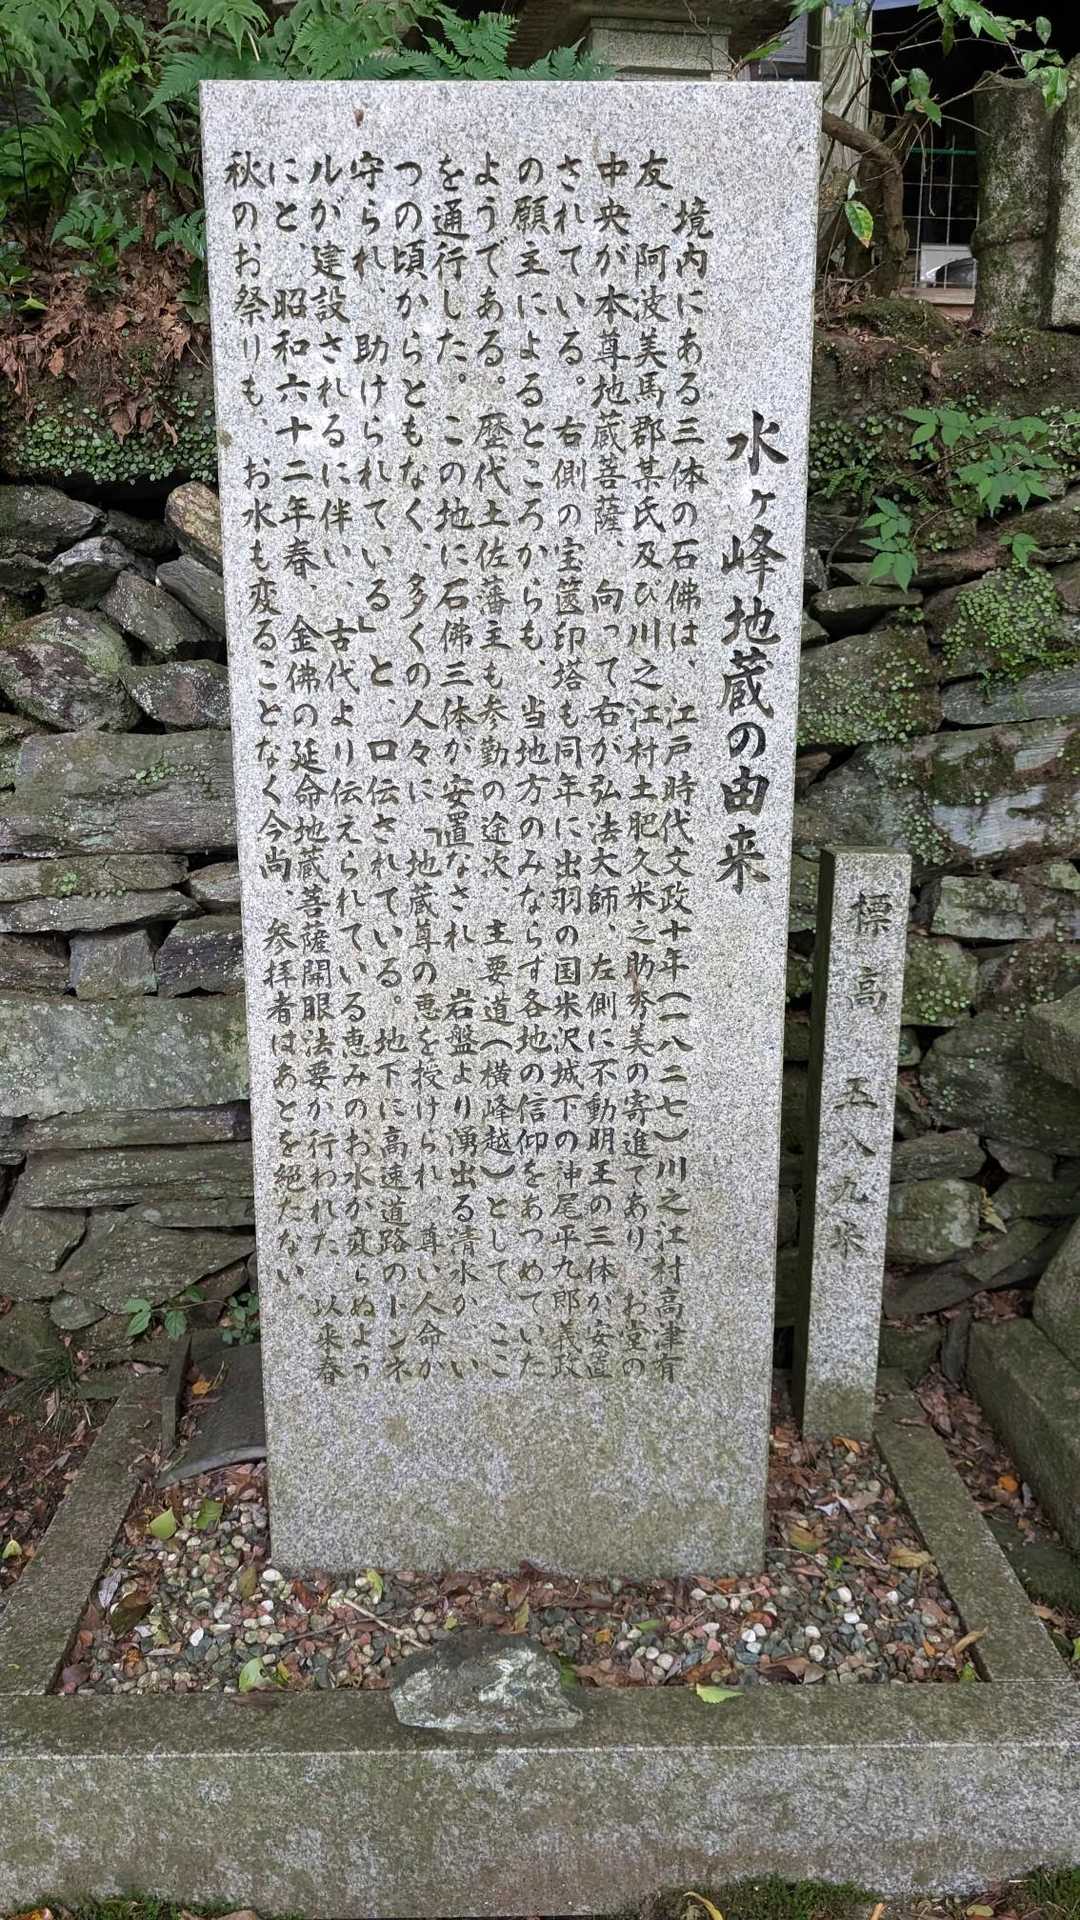 水ヶ峰地蔵の由来
境内にある三体の石佛は、江戸時代文政十年(一八二七)川之江村高津有
友、阿波美馬郡某氏及び川之江村土肥久米之助秀美の寄進であり、お堂の
中央が本尊地蔵菩薩、向って右が弘法大師、左側に不動明王の三体が安置
されている。右側の宝篋印塔も同年に出羽の国米沢城下の沖尾平九郎義政
の願主によるところからも、当地方のみならず各地の信仰をあつめていた
ようである。歴代土佐藩主も参勤の途次、主要道(横峰越)として、ここ
を通行した。この地に石佛三体が安置なされ、岩盤より湧出る清水が、い
つの頃からともなく、多くの人々に「地蔵尊の恵を授けられ、尊い人命が
守られ、助けられている」と、口伝されている。地下に高速道路のトンネ
ルが建設されるに伴い、古代より伝えられている恵みのお水が変らぬよう
にと、昭和六十二年春、金佛の延命地蔵菩薩開眼法要が行われた、以来春
秋のお祭りも、お水も変ることなく今尚、参拝者はあとを絶たない。
標高 五八九米